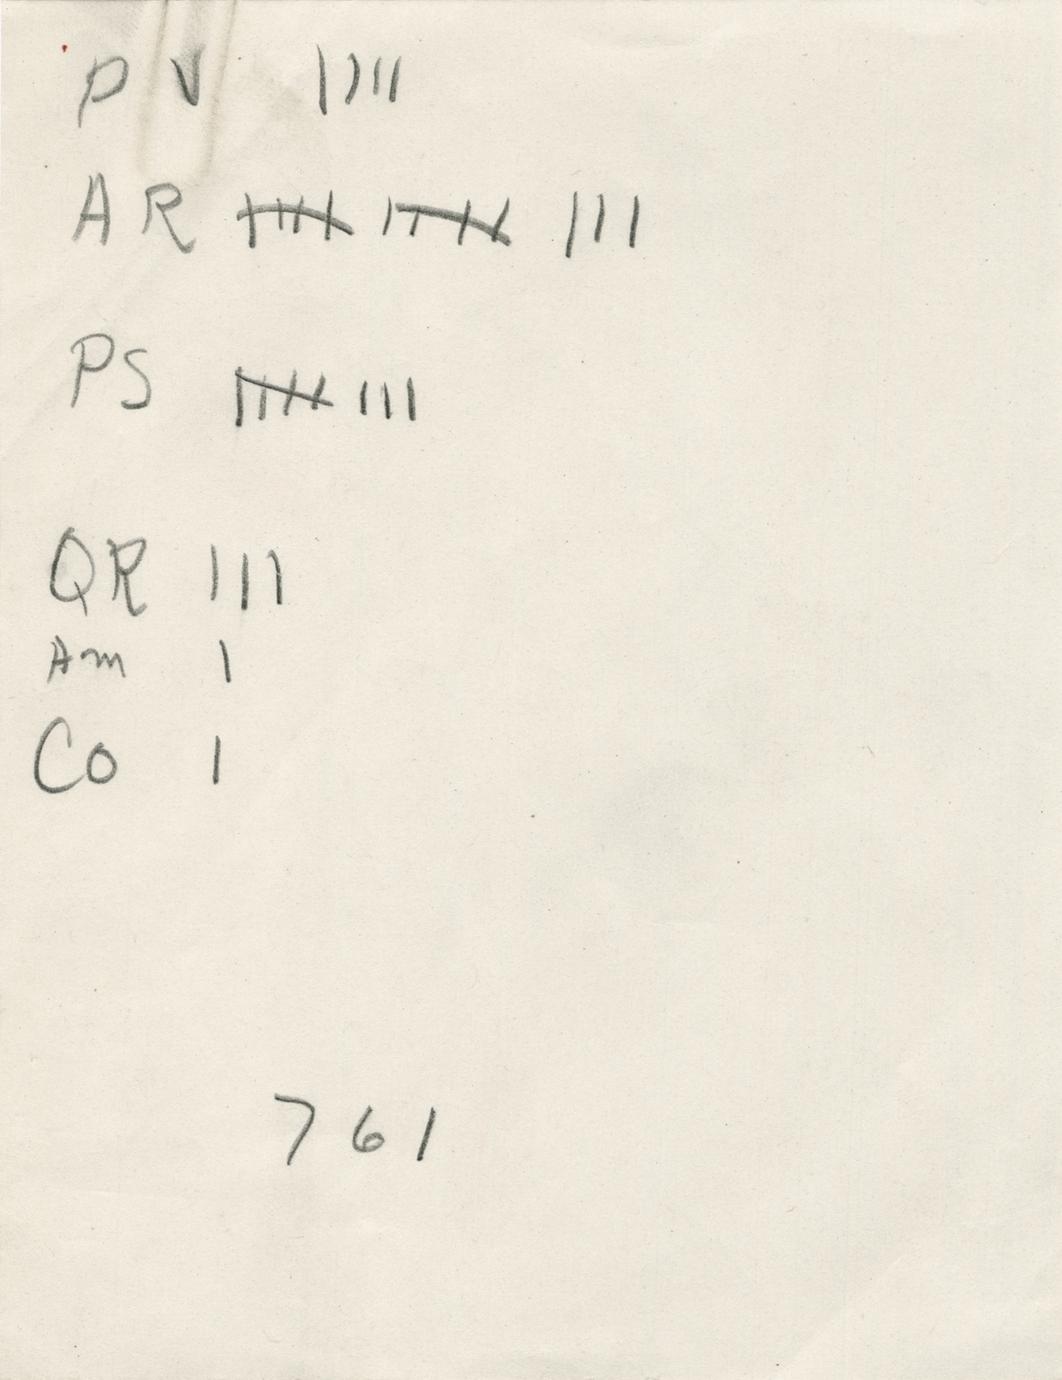 P V ||||
AR 𝍸 𝍸 |||
PS 𝍸 |||
QR |||
Am |
Co |
761